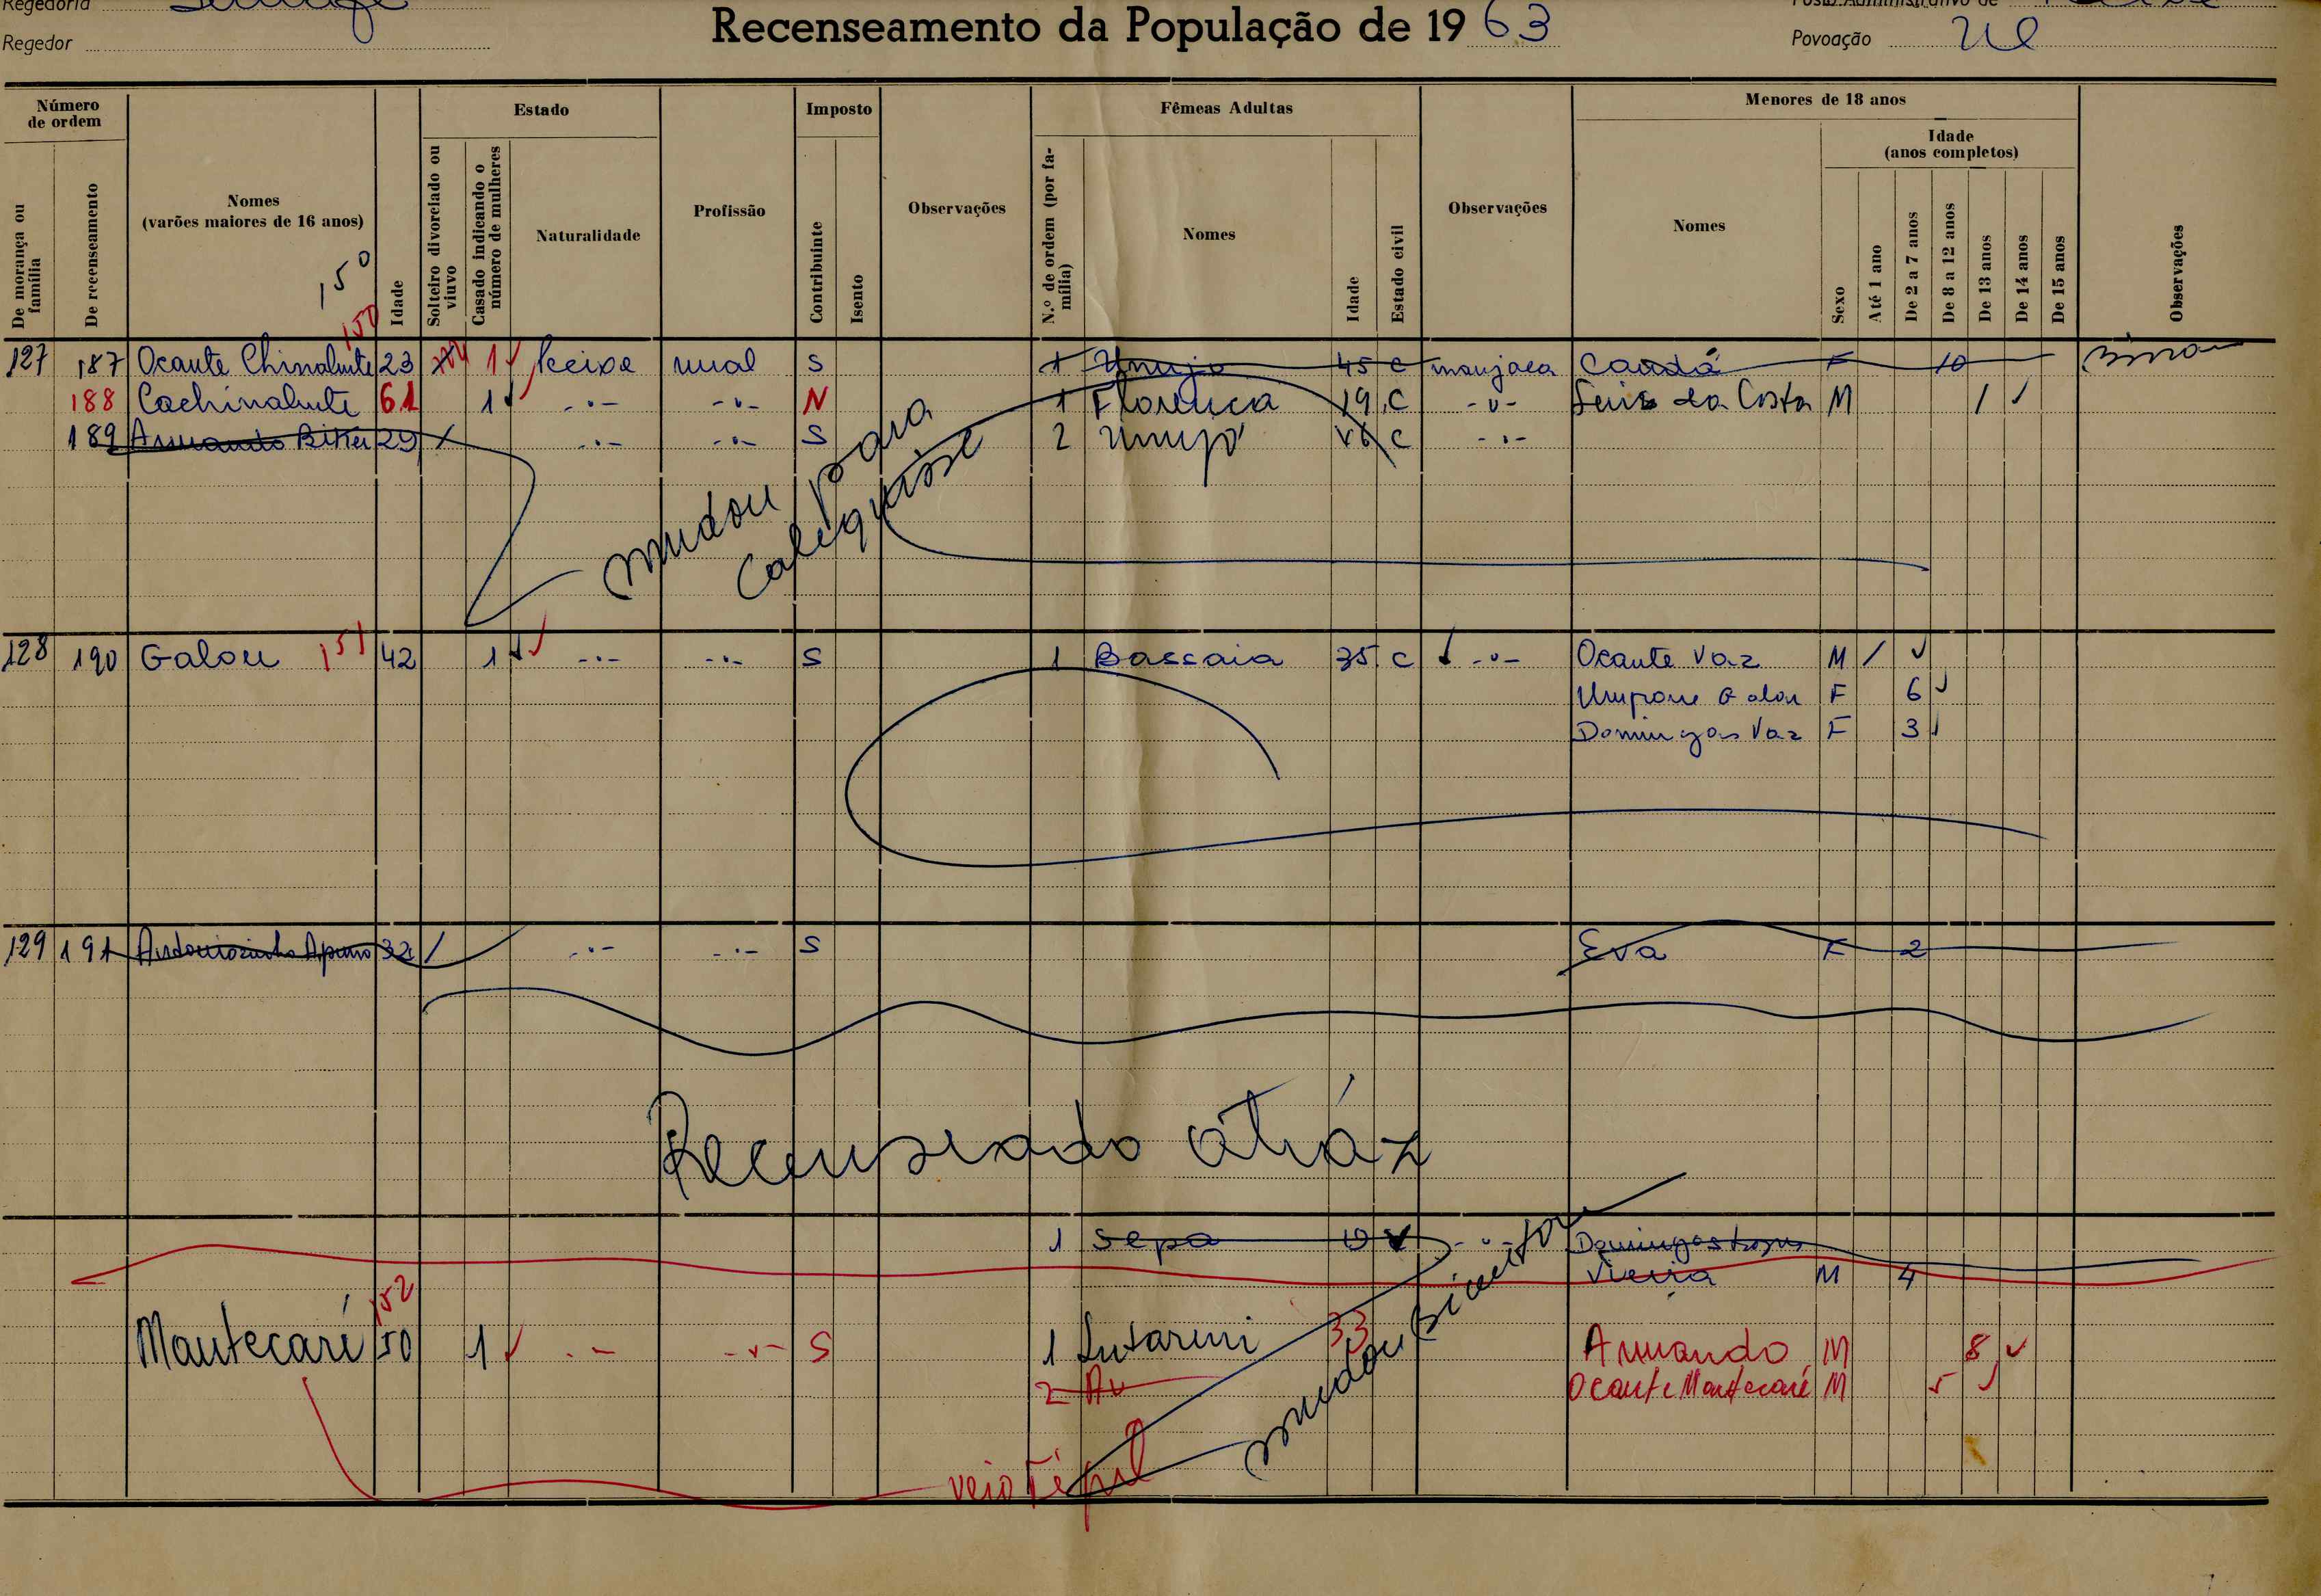 Regedoria
Recenseamento da População de 1963
Regedor
Povoação
Número de ordem
Estado
Imposto
Fêmeas Adultas
Menores de 18 anos
Idade (anos completos)
De morança ou família
De recenseamento
Nomes (varões maiores de 16 anos)
Idade
Solteiro divorciado ou viuvo
Casado indicando o número de mulheres
Naturalidade
Profissão
Contribuinte
Isento
Observações
N.º de ordem (por família)
Nomes
Idade
Estado civil
Observações
Nomes
Sexo
Até 1 ano
De 2 a 7 anos
De 8 a 12 anos
De 13 anos
De 14 anos
De 15 anos
Observações
150
150
127 187 Ocante Chinabute 23 1 rural S 1 45 C manjaca F 10
188 Cachinabute 61 1 -"- -"- N 1 Florença 19 C -"- Luis da Costa M 1
189 Armando 29 -"- -"- S 2 C -"-
mudou para
128 190 Galou 151 42 1 -"- -"- S 1 Bassaia 35 C -"- Ocante Vaz M
F 6
Domingas Vaz F 3
129 191 32 -"- -"- S Eva F 2
atráz
1 Sepa Domingos
Vieira M 4
152
Mantecari 50 1 -"- -"- S 1 33 Armando M 8
2 Ocante Mantecari M 5
mudou
veio